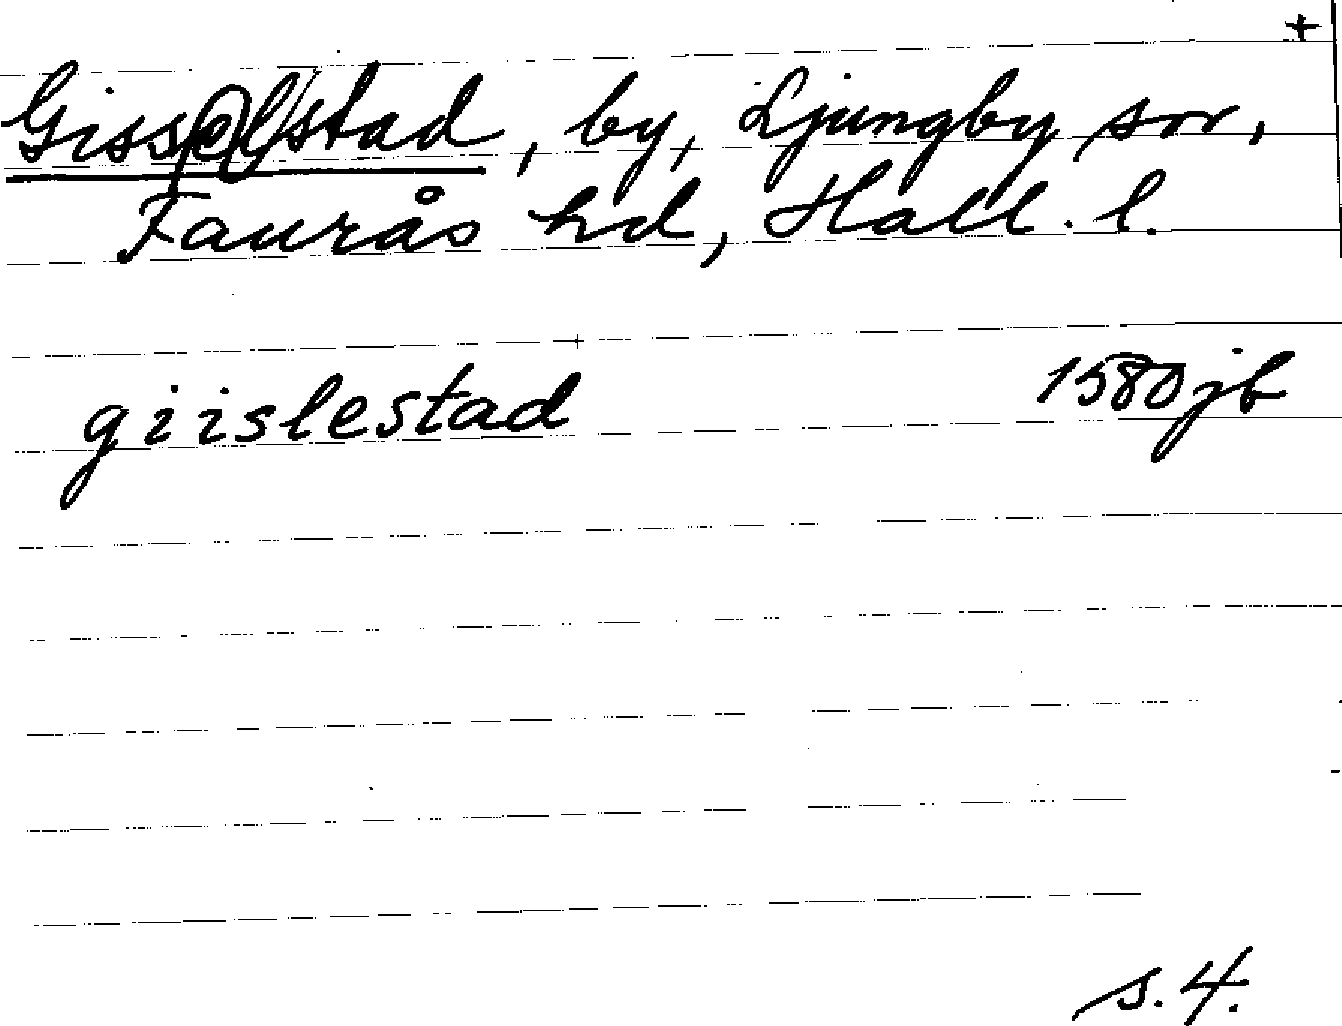 +
Gisselstad, by, Ljungby sn,
Faurås hd, Hall. l.
giislestad 1580 jb
s. 4.